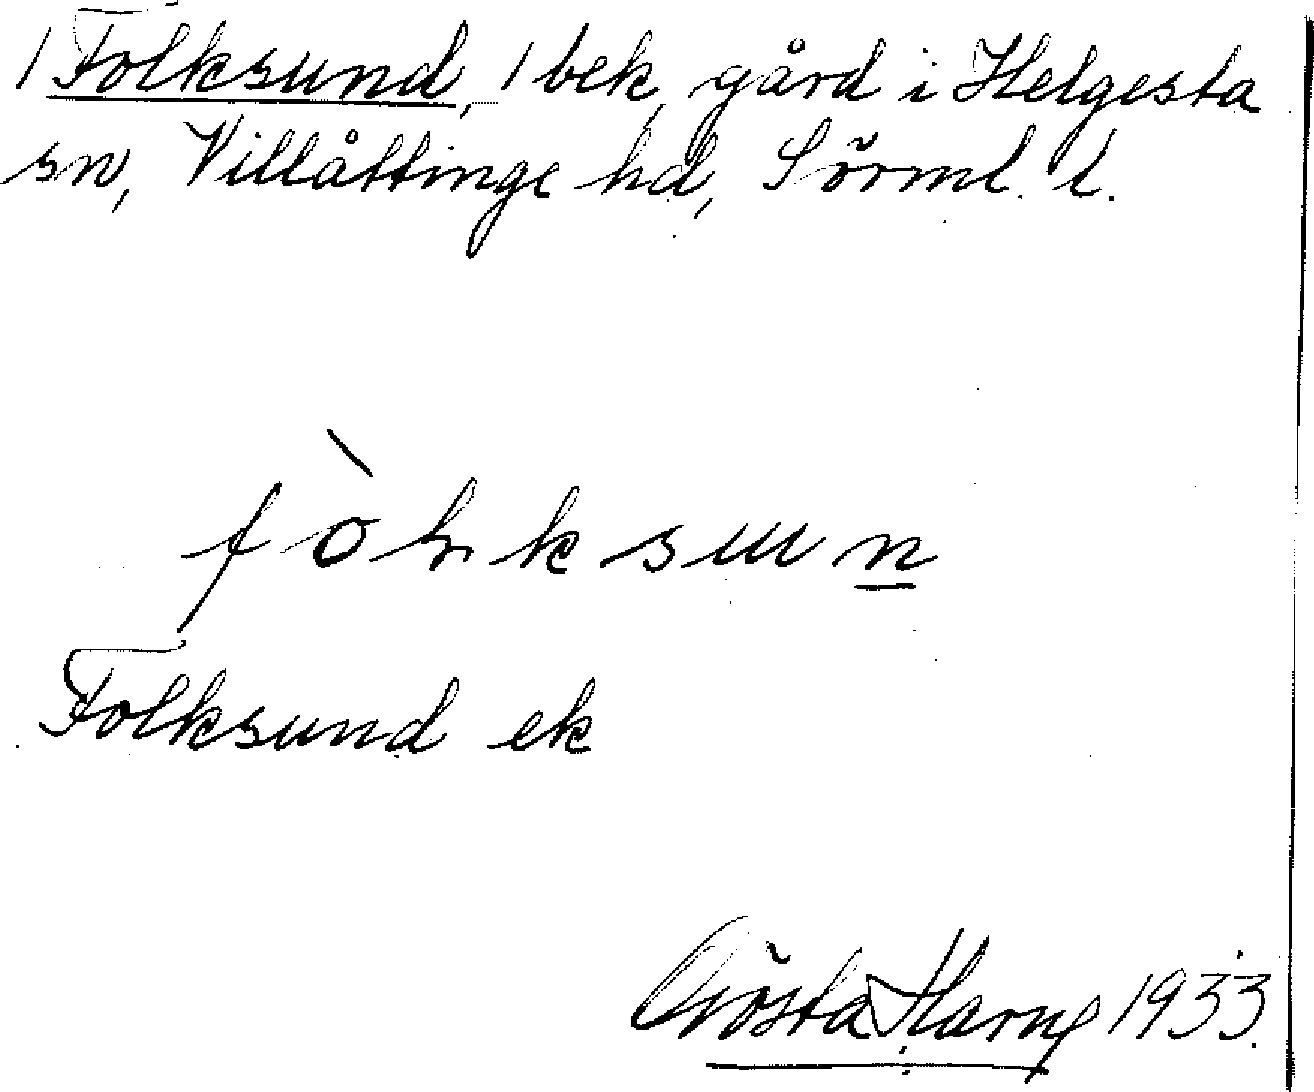 / Folksund, / bek, gård i Helgesta
sn, Villåttinge hd, Sörml. l.
fòlksun
Folksund ek
Gösta Harng 1933.